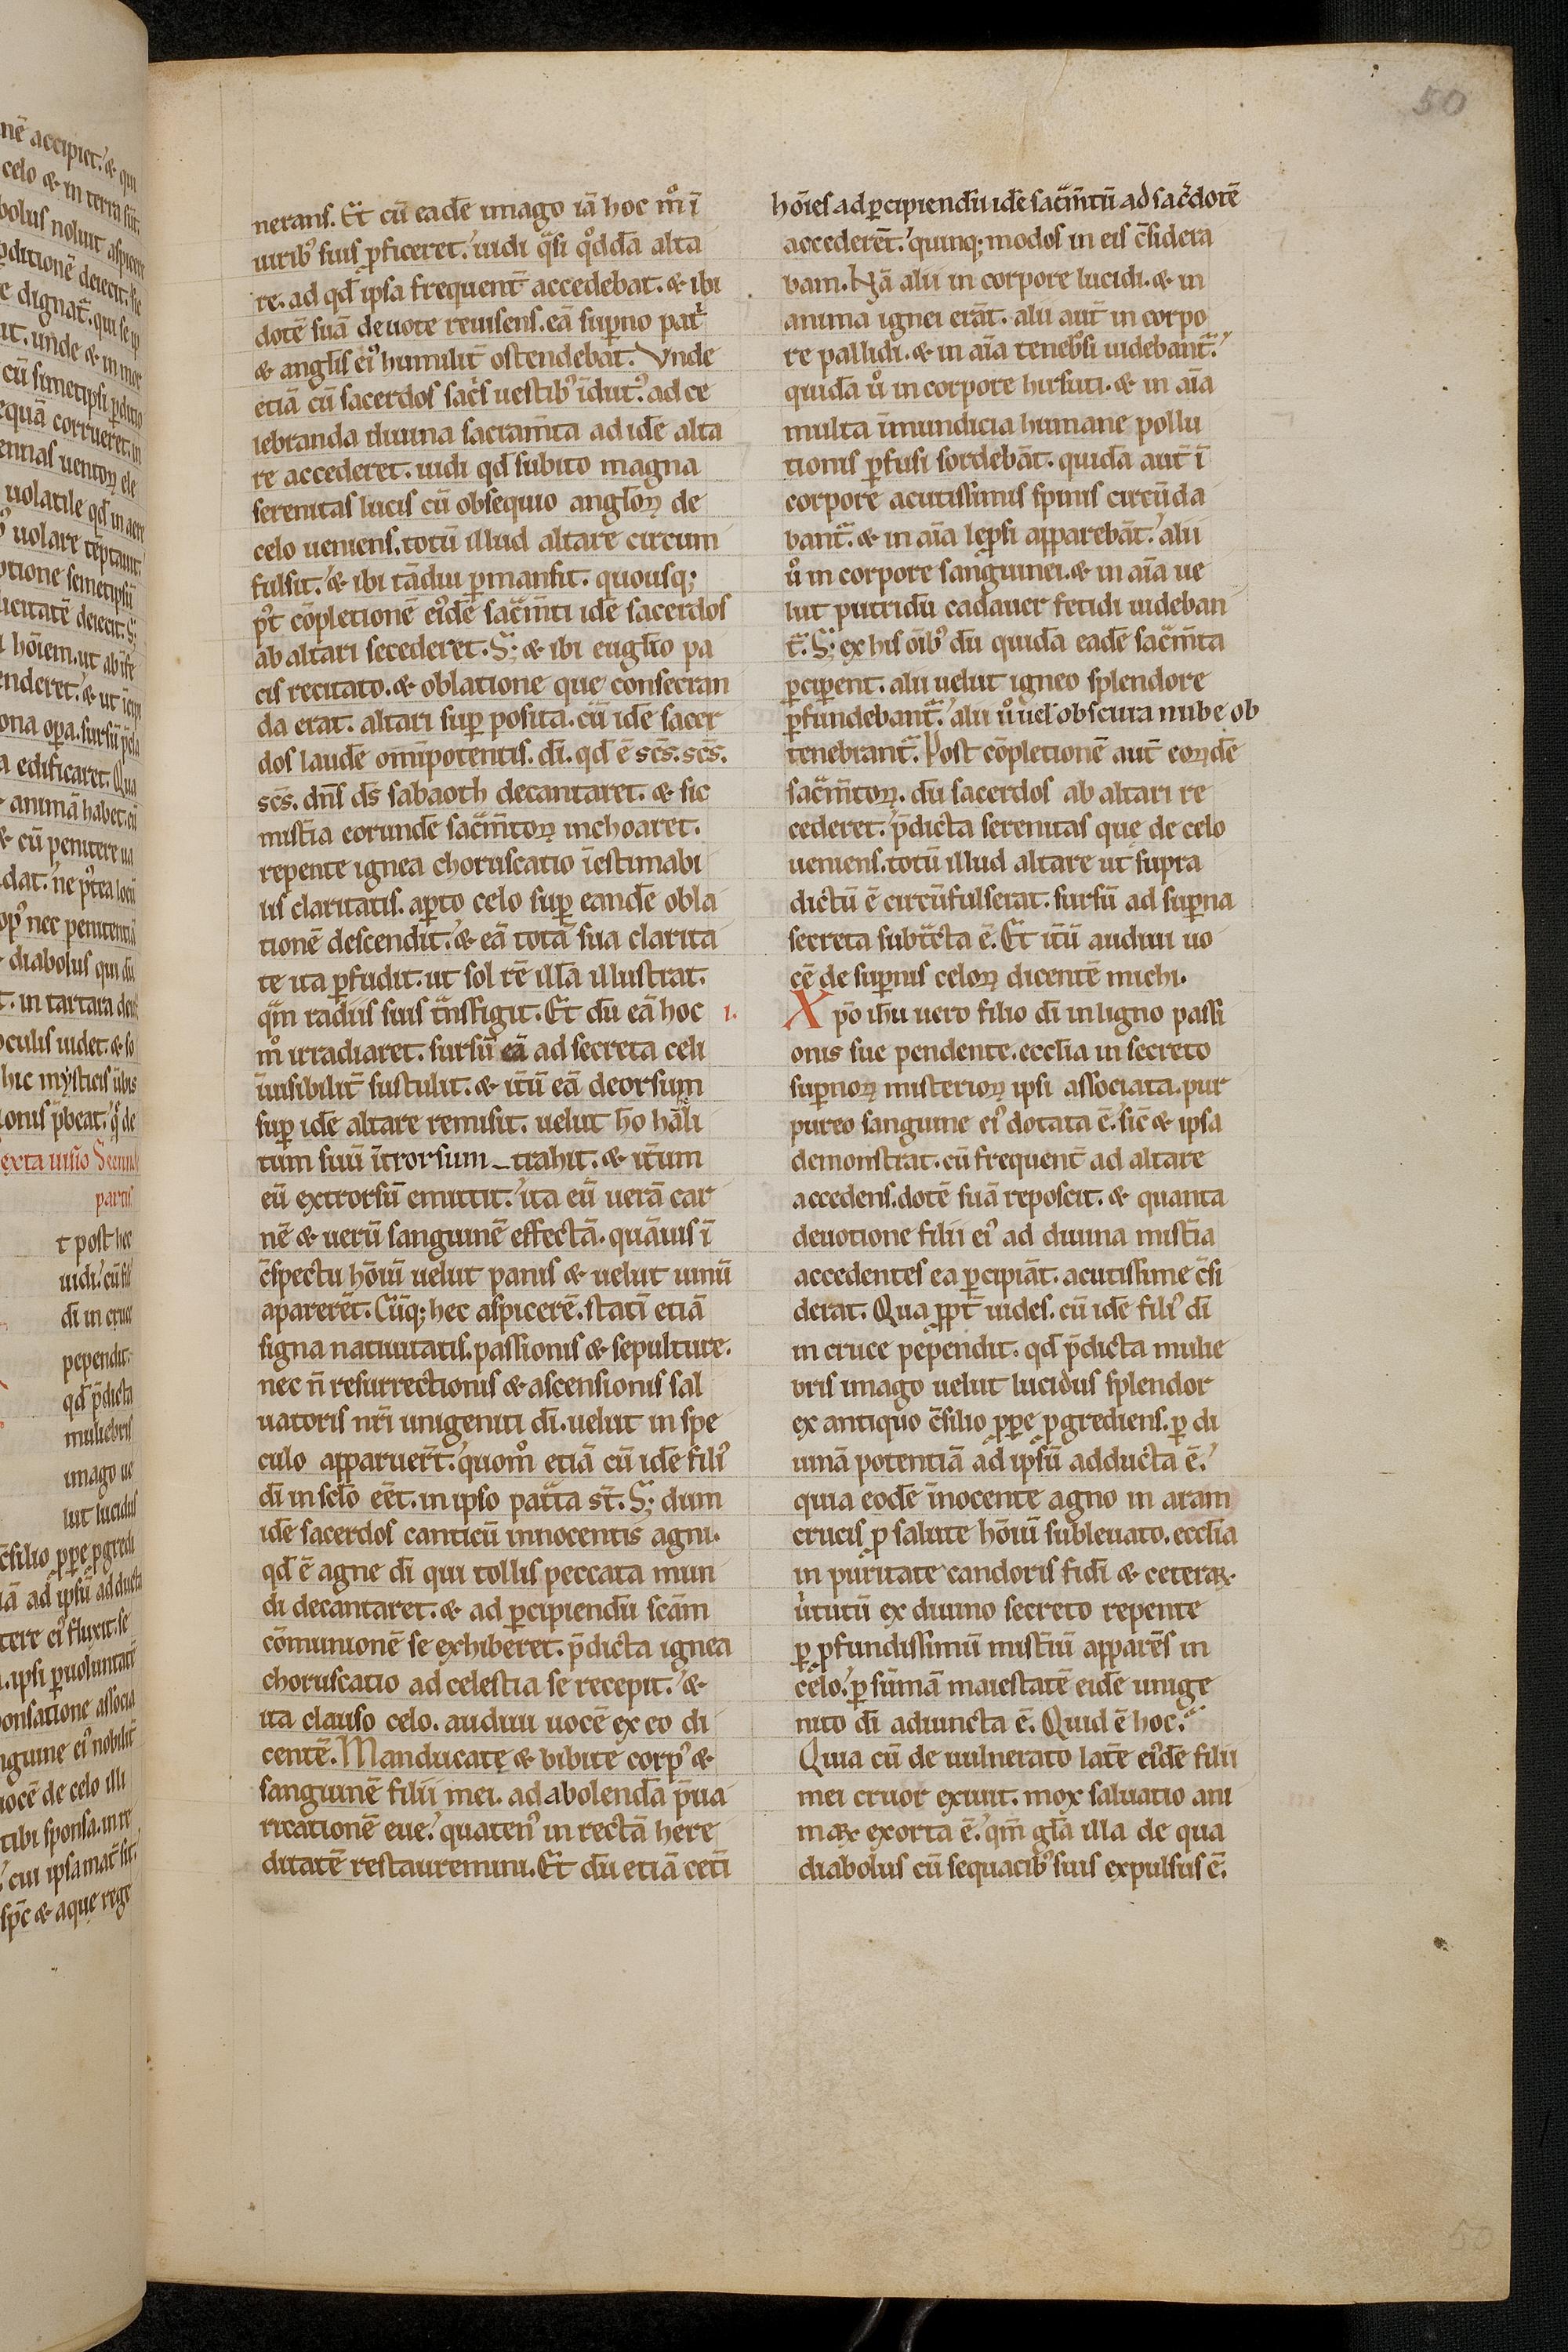 50
nerans. Et cū eadē imago iā hoc m̊ ī
uirib᾽ suis p̱ficeret.᾽ uidi q̄si q̊ddā alta
re. ad qđ ipsa frequent̄ accedebat. & ibi
dotē suā deuote reuisens. eā sup̱no pat͛
& angl̄is ei᾽ humilit̄ ostendebat. Vnde
etiā cū sacerdos sac͛s uestib᾽ īdut᾽. ad ce
lebranda diuina sacram̄ta ad idē alta
re accederet. uidi qđ subito magna
serenitas lucis cū obsequio angl̄oꝝ de
celo ueniens. totū illud altare circum
fulsit.᾽ & ibi tādiu p̱mansit. quousq;
p᾽t cōpletionē ei᾽dē sac̄m̄ti idē sacerdos
ab altari secederet. S; & ibi eugl̄io pa
cis recitato. & oblatione que consecran
da erat. altari sup̱ posita. cū idē sacer
dos laudē om̄ipotentis. dī. qđ ē sc̄s. sc̄s.
sc̄s. dn̄s ds̄ sabaoth decantaret. & sic
mist̄ia eorundē sac̄m̄toꝝ inchoaret.
repente ignea choruscatio īestimabi
lis claritatis. ap̱to celo sup̱ eandē obla
tionē descendit.᾽ & eā totā sua clarita
te ita p̱fudit. ut sol rē illā illustrat.
qm̄ radiis suis t̄nsfigit. Et dū eā hoc
m̊ irradiaret. sursū eā ad secreta celi
īuisibilit̄ sustulit. & it̄ū eā deorsum
sup̱ idē altare remisit. uelut ho hāli
tum suū īt̄rorsum trahit. & it̄um
eū extrorsū emittit.᾽ ita eū uerā car
nē & uerū sanguinē effectā. quāuis ī
c̄spectu hōiū uelut panis & uelut uinū
apareret̄. Cūq; hec aspicerē. statī etiā
signa natiuitatis. passionis & sepulture.
nec n̄ resurrectionis & ascensionis sal
uatoris nr̄i unigeniti dī. uelut in spe
culo apparuer̄t.᾽ quom̊ etiā cū idē fili᾽
dī in sclo eēt. in ipso pat̄ta st̄. S; dum
idē sacerdos canticū innocentis agni.
qđ ē agne dī qui tollis peccata mun
di decantaret. & ad p̱cipiendū scām
cōmunionē se exhiberet. p̄dicta ignea
choruscatio ad celestia se recepit.᾽ &
ita clauso celo. audiui uocē ex eo di
centē. Manducate & bibite corp᾽ &
sanguinē filii mei. ad abolendā p̄ua
ricationē eue.᾽ quaten᾽ in rectā here
ditatē restauremini. Et dū etiā cet̄i
hōies ad p̱cipiendū idē sac̄m̄tū ad sac͛dotē
accederēt.᾽ quinq; modos in eis c̄sidera
bam. Nā alii in corpore lucidi. & in
anima ignei erāt. alii aut̄ in corpo
re pallidi. & in aīa teneb᾽si uidebant᷑.᾽
quidā u̓o in corpore hirsuti. & in aīa
multa īmundicia humane pollu
tionis p̱fusi sordebāt. quidā aut̄ ī
corpore acutissimis spinis circūda
bant᷑. & in aīa lep̱si apparebāt.᾽ alii
u̓o in corpore sanguinei. & in aīa ue
lut putridū cadauer fetidi uideban
t᷑. S; ex his oīb᾽ dū quidā eadē sac̄m̄ta
p̱cip̱ent. alii uelut igneo splendore
p̱fundebant᷑.᾽ alii u̓o uel᾽ obscura nube ob
tenebrant᷑. Post cōpletionē aut̄ eoꝝdē
sac̄m̄toꝝ. dū sacerdos ab altari re
cederet.᾽ p̄dicta serenitas que de celo
ueniens. totū illud altare ut supra
dictū ē circūfulserat. sursū ad sup̱na
secreta subt̄cta ē. Et it̄ū audiui uo
cē de sup̱nis celoꝝ dicentē michi.
1. Xp̄o ih̄u uero filio dī in ligno passi
onis sue pendente. eccl̄ia in secreto
sup̱noꝝ misterioꝝ ipsi associata. pur
pureo sanguine ei᾽ dotata ē. sic̄ & ipsa
demonstrat. cū frequent̄ ad altare
accedens. dotē suā reposcit. & quanta
deuotione filii ei᾽ ad diuina mist̄ia
accedentes ea p̱cipiāt. acutissime c̄si
derat. Qua ꝓpt̄ uides. cū idē fili᾽ dī
in cruce pependit. qđ p̄dicta mulie
bris imago uelut lucidus splendor
ex antiquo c̄silio ꝓp̱e ꝓgrediens. p̱ di
uinā potentiā ad ipsū adducta ē.᾽
quia eodē īnocente agno in aram
crucis ꝓ salute hōiū subleuato. eccl̄ia
in puritate candoris fidī & ceteraꝝ
u͛tutū ex diuino secreto repente
p̱ ꝓfundissimū mist̄iū apparēs in
celo.᾽ p̱ sūmā maiestatē eidē unige
nito dī adiuncta ē. Quid ē hoc.᾽
Quia cū de uulnerato latē ei᾽dē filii
mei cruor exiuit. mox saluatio ani
maꝝ exorta ē.᾽ qm̄ gl̄a illa de qua
diabolus cū sequacib᾽ suis expulsus ē.
50